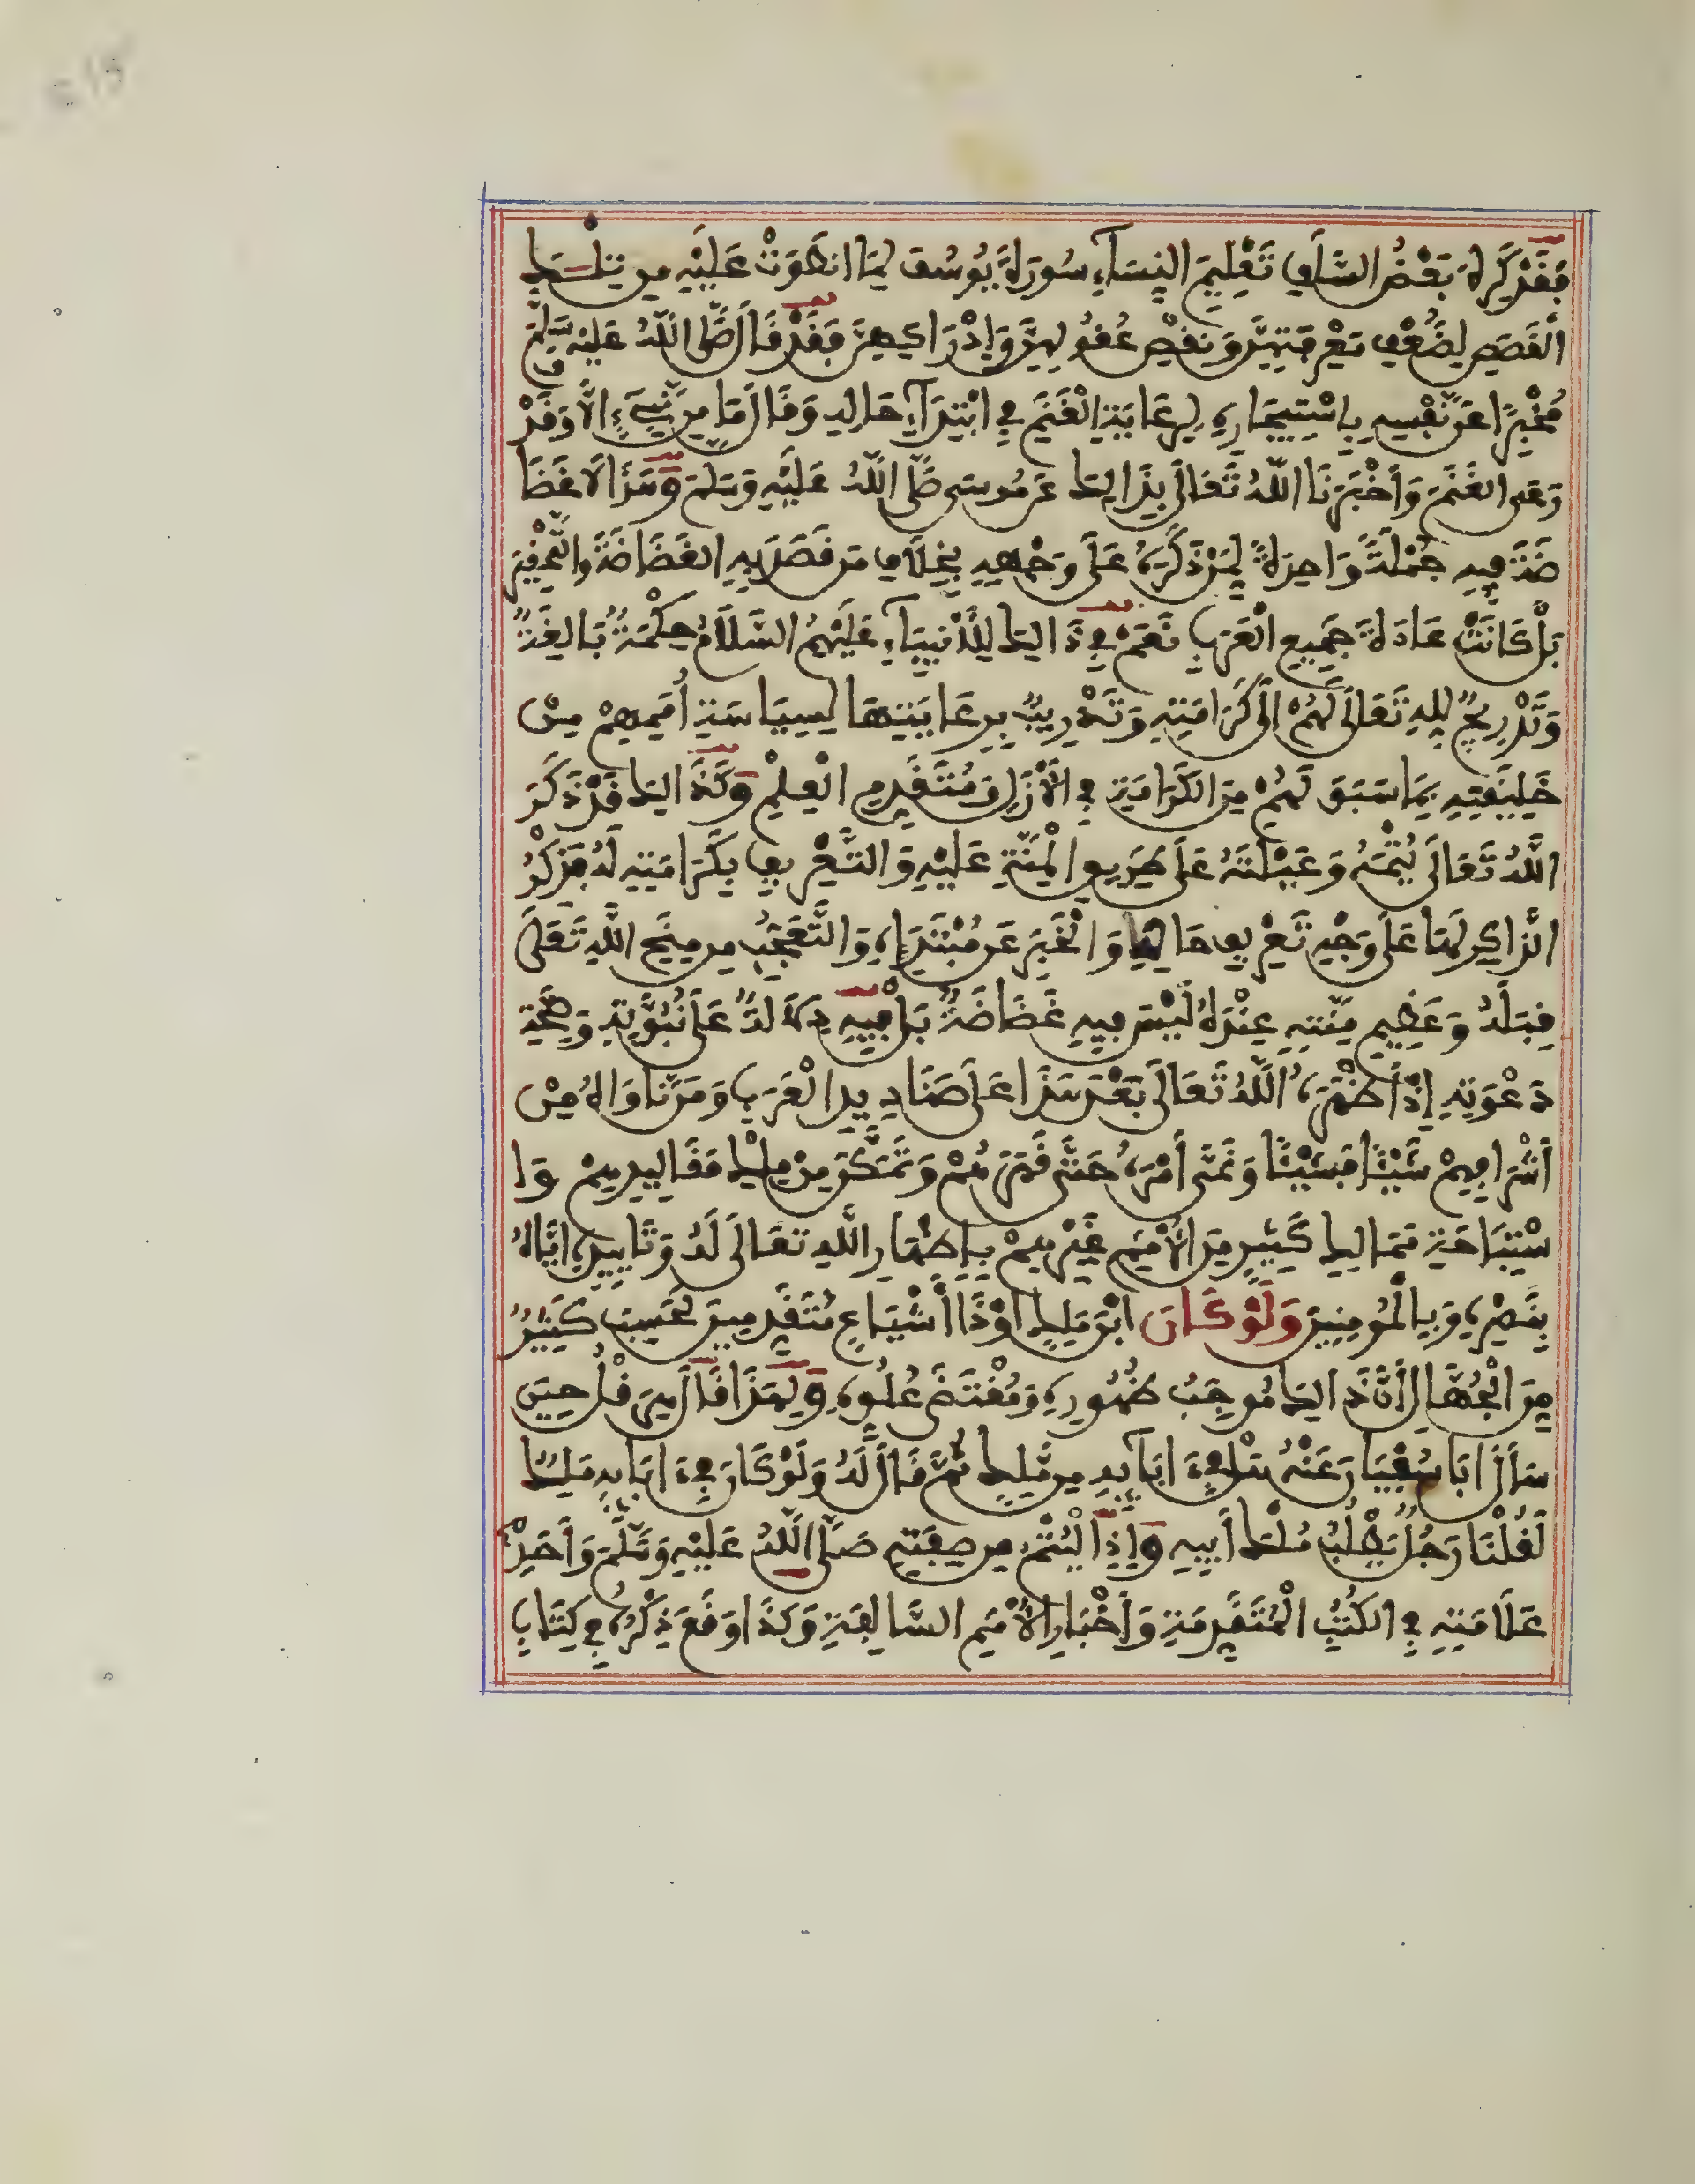 فَقَدْ كَرِهَ بَعْضُ السَّلَفِ تَعْلِيمَ النِّسَاءِ سُورَةَ يُوسُفَ لِمَا انْطَوَتْ عَلَيْهِ مِنْ تِلْكَ
الْقَصَصِ لِضُعْفِ مَعْرِفَتِهِنَّ وَنَقْصِ عُقُولِهِنَّ وَإِدْرَاكِهِنَّ فَقَدْ قَالَ صَلَّى اللَّهُ عَلَيْهِ وَسَلَّمَ
مُخْبِرًا عَنْ نَفْسِهِ بِاسْتِيجَارِهِ لِرِعَايَةِ الْغَنَمِ فِي ابْتِدَاءِ حَالِهِ وَقَالَ مَا مِنْ نَبِيءٍ إِلَّا وَقَدْ
رَعَى الْغَنَمَ وَأَخْبَرَنَا اللَّهُ تَعَالَى بِذَالِكَ عَنْ مُوسَى صَلَّى اللَّهُ عَلَيْهِ وَسَلَّمَ وَهَذَا لَا غَضَا
ضَةَ فِيهِ جُمْلَةً وَاحِدَةً لِمَنْ ذَكَرَهُ عَلَى وَجْهِهِ بِخِلَافِ مَنْ قَصَدَ بِهِ الْغَضَاضَةَ وَالتَّحْقِيرَ
بَلْ كَانَتْ عَادَةَ جَمِيعِ الْعَرَبِ نَعَمْ فِي ذَالِكَ لِلْأَنْبِيَاءِ عَلَيْهِمُ السَّلَامُ حِكْمَةٌ بَالِغَةٌ
وَتَدْرِيجٌ لِلهِ تَعَالَى لَهُمْ إِلَى كَرَامَتِهِ وَتَدْرِيبٌ بِرِعَايَتِهَا لِسِيَاسَةِ أُمَمِهِمْ مِنْ
خَلِيقَتِهِ بِمَا سَبَقَ لَهُمْ مِنَ الْكَرَامَةِ فِي الْأَزَلِ وَمُتَقَدِّمِ الْعِلْمِ وَكَذَالِكَ قَدْ ذَكَرَ
اللَّهُ تَعَالَى يُتْمَهُ وَعَيْلَتَهُ عَلَى طَرِيقِ الْمِنَّةِ عَلَيْهِ وَالتَّعْرِيفِ بِكَرَامَتِهِ لَهُ فَذِكْرُ
الذَّاكِرِ لَهَا عَلَى وَجْهِ تَعْرِيفِ حَالِهَا وَالْخَبَرِ عَنْ مُبْتَدَاهِ وَالتَّعَجُّبِ مِنْ مِنَحِ اللَّهِ تَعَلَى
قِبَلَهُ وَعَظِيمِ مِنَّتِهِ عِنْدَهُ لَيْسَ فِيهِ غَضَاضَةٌ بَلْ فِيهِ دَلَالَةٌ عَلَى نُبُوَّتِهِ وَصِحَّةِ
دَعْوَتِهِ إِذْ أَظْهَرَهُ اللَّهُ تَعَالَى بَعْدَ هَذَا عَلَى صَنَادِيدِ الْعَرَبِ وَمَنْ نَاوَاهُ مِنْ
أَشْرَافِهِمْ شَيْئًا فَشَيْئًا وَنَمَّى أَمْرَهُ حَتَّى قَهَرَهُمْ وَتَمَكَّنَ مِنْ مِلْكِ مَقَالِيدِهِمْ وَا
سْتِبَاحَةِ مَمَالِكِ كَثِيرٍ مِنَ الْأُمَمِ غَيْرِهِمْ بِإِظْهَارِ اللَّهِ تَعَالَى لَهُ وَتَايِيدِهِ إِيَّاهُ
بِنَصْرِهِ وَبِالْمُومِنِينَ وَلَوْ كَانَ ابْنَ مَلِكٍ اوْ ذَا أَشْيَاعٍ مُتَقَدِّمِينَ لَحَسِبَ كَثِيرٌ
مِنَ الْجُهَّالِ أَنَّ ذَالِكَ مُوجِبُ ظُهُورِهِ وَمُقْتَضَى عُلُوِّهِ وَلِهَذَا قَالَ هِرَقْلُ حِينَ
سَأَلَ أَبَا سُفْيَانَ عَنْهُ هَلْ فِي ءَابَايِهِ مِنْ مَلِكٍ ثُمَّ قَالَ لَهُ وَلَوْ كَانَ فِي ءَابَايِهِ مَلِكٌ
لَقُلْنَا رَجُلٌ يَطْلُبُ مُلْكَ أَبِيهِ وَإِذَا الْيُتْمُ مِنْ صِفَتِهِ صَلَّى اللَّهُ عَلَيْهِ وَسَلَّمَ وَأَحَدُ
عَلَامَتِهِ فِي الْكُتُبِ الْمُتَقَدِّمَةِ وَأَخْبَارِ الْأُمَمِ السَّالِفَةِ وَكَذَا وَقَعَ ذِكْرُهُ فِي كِتَابِ